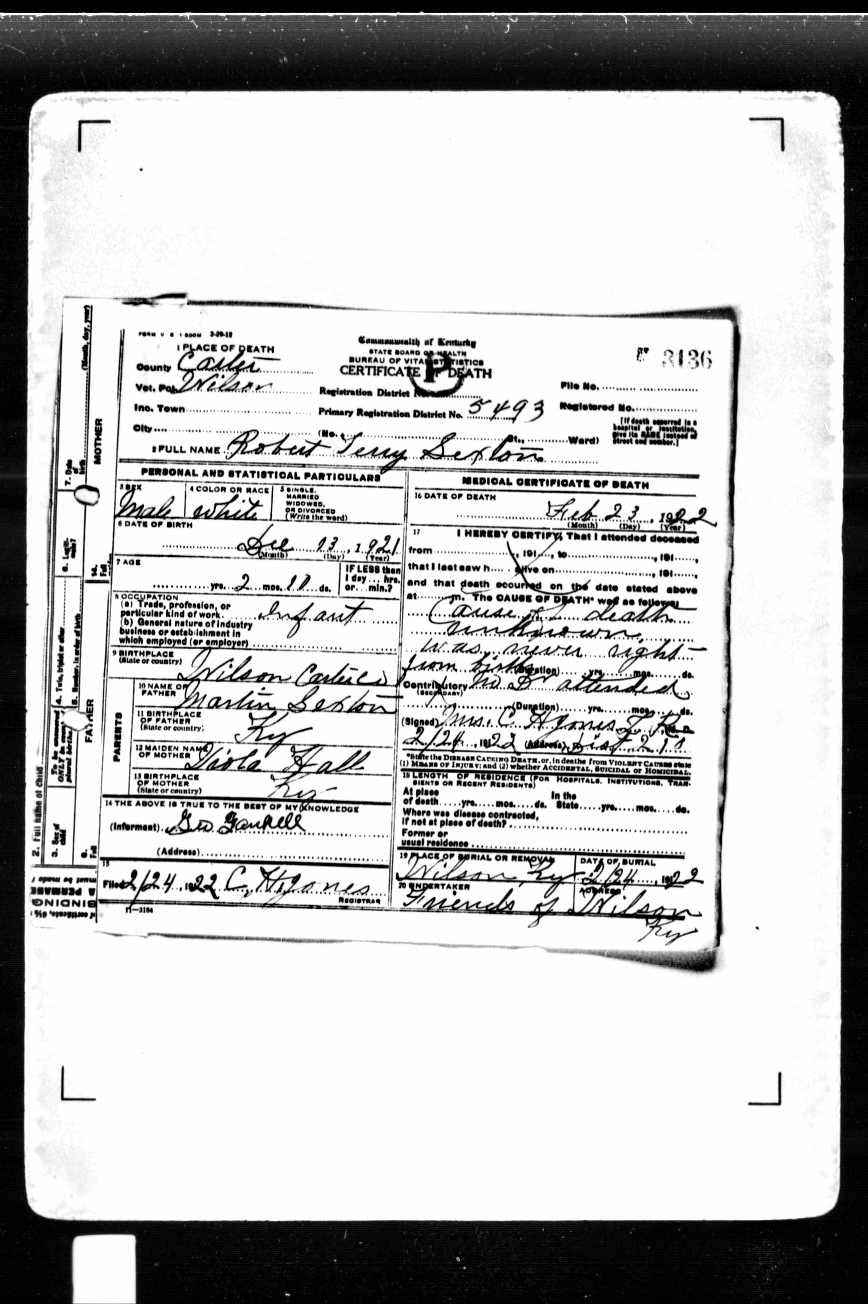 FORM V S 1 500M 3-29-18
1 PLACE OF DEATH
County Carter
Vot. Pct. Wilson
Inc. Town
City
Commonwealth of Kentucky
STATE BOARD OF HEALTH
BUREAU OF VITAL STATISTICS
CERTIFICATE OF DEATH
Registration District No.
Primary Registration District No. 5493
(No. St., Ward)
3136
File No.
Registered No.
[If death occurred in a
hospital or institution,
give its NAME instead of
street and number.]
2 FULL NAME Robert Terry Sexton
PERSONAL AND STATISTICAL PARTICULARS
3 SEX
Male
4 COLOR OR RACE
White
5 SINGLE,
MARRIED
WIDOWED,
OR DIVORCED
(Write the word)
6 DATE OF BIRTH
Dec 13, 1921
(Month) (Day) (Year)
7 AGE
yrs. 2 mos. 10 ds.
IF LESS than
1 day... hrs.
or... min.?
8 OCCUPATION
(a) Trade, profession, or
particular kind of work. Infant
(b) General nature of industry
business or establishment in
which employed (or employer)
9 BIRTHPLACE
(State or country) Wilson Carter Co
PARENTS
10 NAME OF
FATHER Martin Sexton
11 BIRTHPLACE
OF FATHER
(State or country) Ky
12 MAIDEN NAME
OF MOTHER Viola Hall
13 BIRTHPLACE
OF MOTHER
(State or country) Ky
14 THE ABOVE IS TRUE TO THE BEST OF MY KNOWLEDGE
(Informant) Geo
(Address)
15
Filed 2/24, 1922 C. H. Jones
REGISTRAR
11—3184
MEDICAL CERTIFICATE OF DEATH
16 DATE OF DEATH
Feb 23, 1922
(Month) (Day) (Year)
17 I HEREBY CERTIFY, That I attended deceased
from , 191 , to , 191 ,
that I last saw h alive on , 191 ,
and that death occurred on the date stated above
at m. The CAUSE OF DEATH* was as follows:
Cause of death
unknown
was never right
from birth (Duration) yrs. mos. ds.
Contributory No Dr attended
(SECONDARY)
(Duration) yrs. mos. ds.
(Signed) Mrs. C. H. Jones L. R. M. D.
2/24, 1922 (Address)
*State the DISEASE CAUSING DEATH, or, in deaths from VIOLENT CAUSES state
(1) MEANS OF INJURY; and (2) whether ACCIDENTAL, SUICIDAL or HOMICIDAL.
18 LENGTH OF RESIDENCE (FOR HOSPITALS, INSTITUTIONS, TRANSIENTS OR RECENT RESIDENTS)
At place In the
of death yrs. mos. ds. State yrs. mos. ds.
Where was disease contracted,
if not at place of death?
Former or
usual residence
19 PLACE OF BURIAL OR REMOVAL
Wilson, Ky
DATE OF BURIAL
2/24, 1922
20 UNDERTAKER
Friends of
ADDRESS
Wilson
Ky
MOTHER
FATHER
2. Full name of child
3. Sex of
child